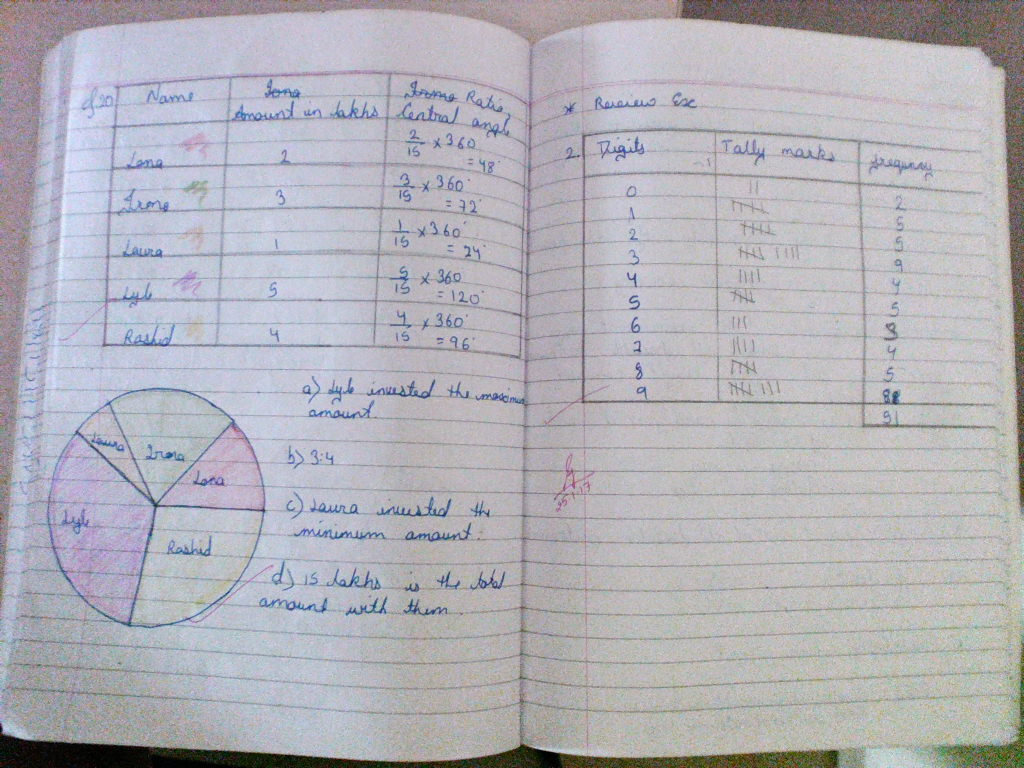 Name
Iona
Amount in lakhs
Irono Ratio,
Central angle
Lona
2
2/15 × 360
= 48°
Irono
3
3/15 × 360°
= 72°
Laura
1
1/15 × 360°
= 24°
Lyle
5
5/15 × 360
= 120°
Rashid
4
4/15 × 360°
= 96°
Laura
Irona
Lona
Lyle
Rashid
a) Lyle invested the maximum
amount.
b) 3:4
c) Laura invested the
minimum amount.
d) 15 lakhs is the total
amount with them.
* Review Ex
2. Digits Tally marks frequency
0 || 2
1 𝍸 5
2 𝍸 5
3 𝍸 |||| 9
4 |||| 4
5 𝍸 5
6 ||| 3
7 |||| 4
8 𝍸 5
9 𝍸 ||| 8
51
25.1.17